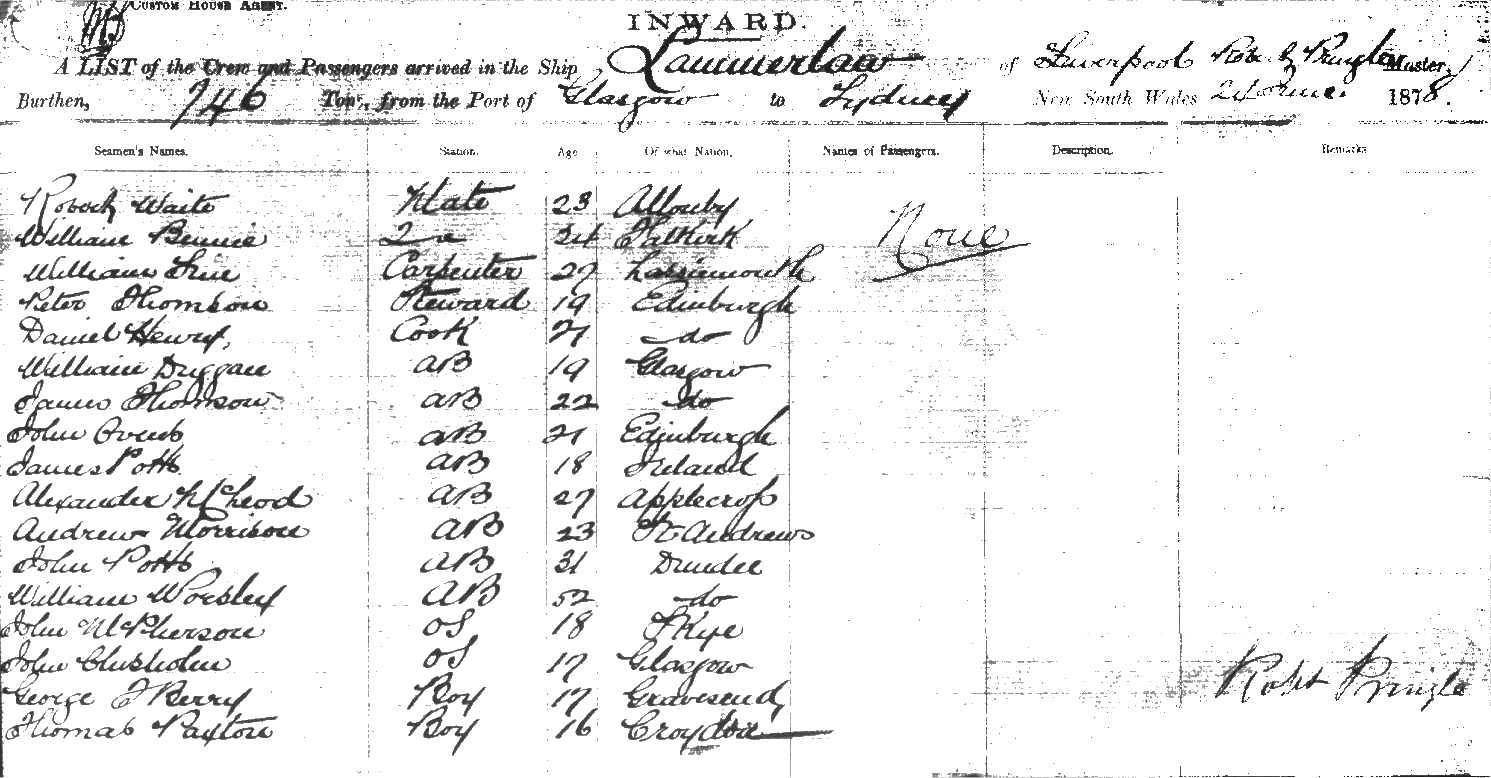 CUSTOM HOUSE AGENT.
INWARD.
A LIST of the Crew and Passengers arrived in the Ship Lammerlaw of Liverpool Robt Pringle Master,
Burthen, 746 Tons, from the Port of Glasgow to Sydney New South Wales 24 June 1878.
Seamen's Names. Station. Age Of what Nation. Names of Passengers. Description. Remarks
Waite Mate 23 Allonby None
William Binnie 2 24 Falkirk
William Carpenter 27 Lossiemouth
Peter Thomson Steward 19 Edinburgh
Daniel Henry, Cook 21 do
William Duggan AB 19 Glasgow
James Thomson AB 22 do
John Ovens AB 21 Edinburgh
James Potts AB 18 Ireland
Alexander McLeod AB 27 Applecross
Andrew Morrison AB 23 St Andrews
John Potts AB 31 Dundee
William Worsley AB 52 do
John McPherson OS 18 Skye
John Chisholm OS 17 Glasgow
George F Berry Boy 17 Gravesend
Thomas Paxton Boy 16 Croydon
Robt Pringle